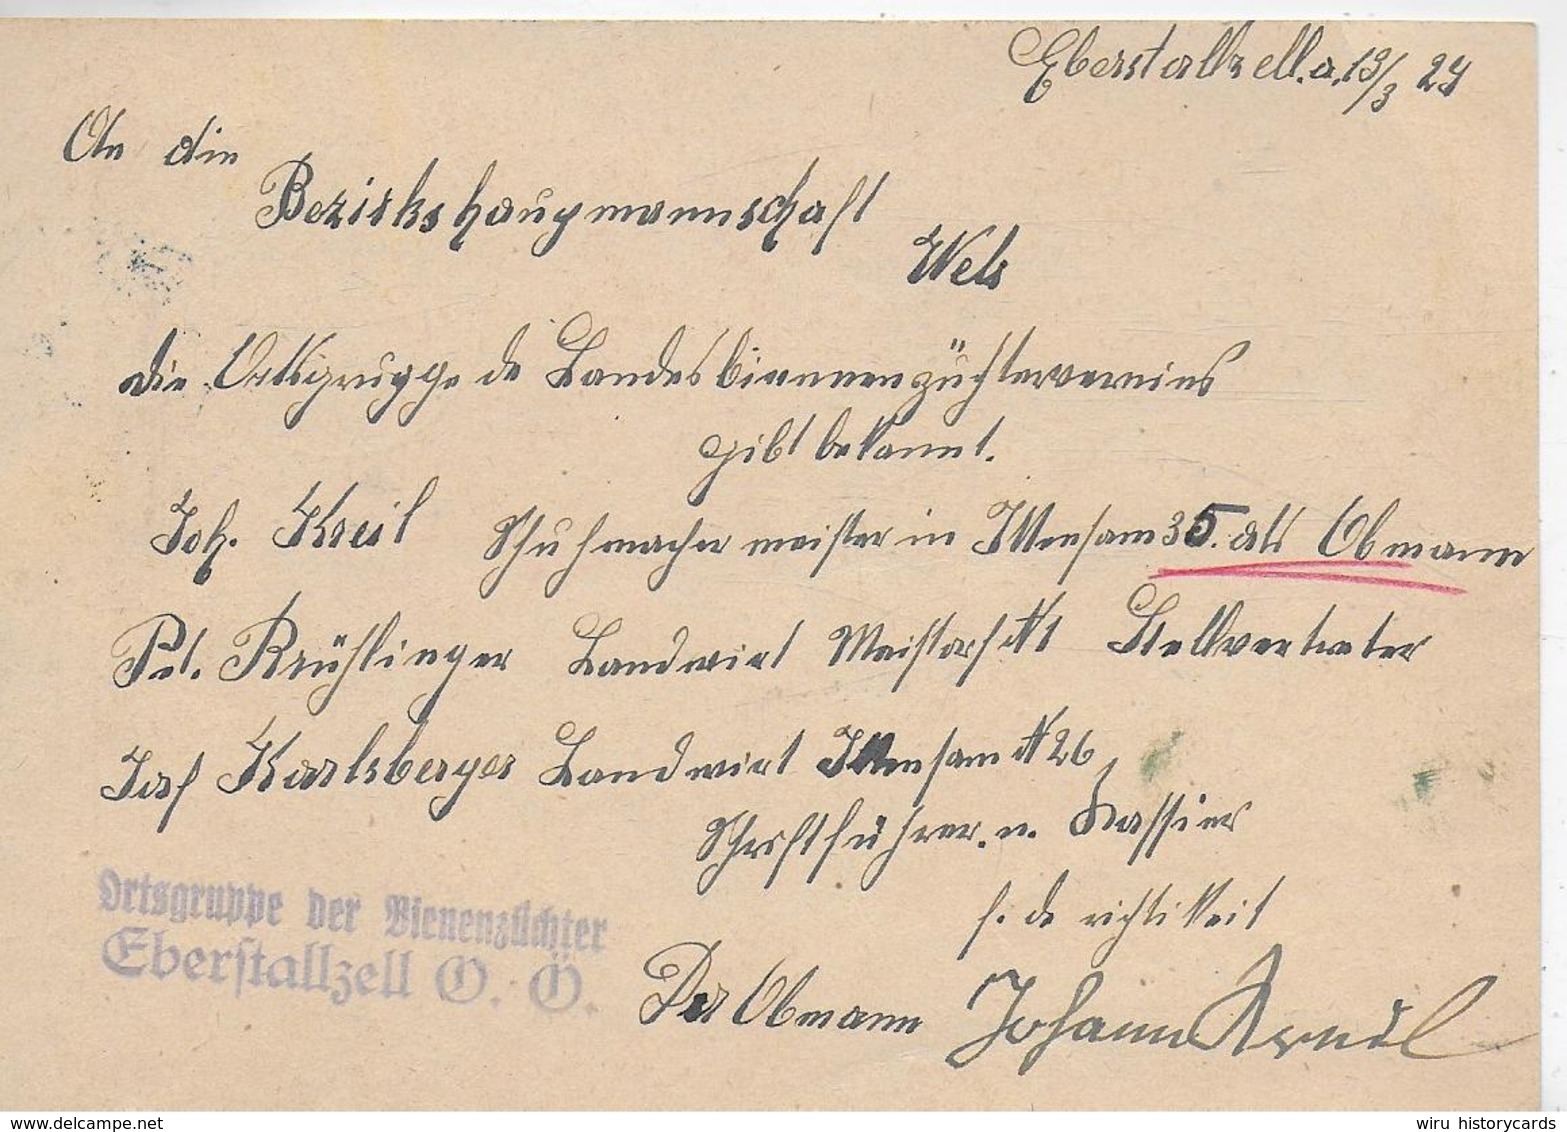 Eberstallzell. a. 13/3 24
An die
Bezirkshaupmannschaft
Wels
die Ortsgruppe de Landesbienenenzüchtervereins
gibt bekannt.
Joh. Kreil Schuhmachermeister in Ittensam 35. als Obmann
Pet. Krühlinger Landwirt Maistorf N 1 Stellvertreter
Josf Karlsberger Landwirt Ittensam N 26,
Schriftführer. u. Kassier
f. de richtikeit
Ortsgruppe der Bienenzüchter
Eberstallzell O. Ö.
Der Obmann Johann Kreil
wiru historycards
delcampe.net